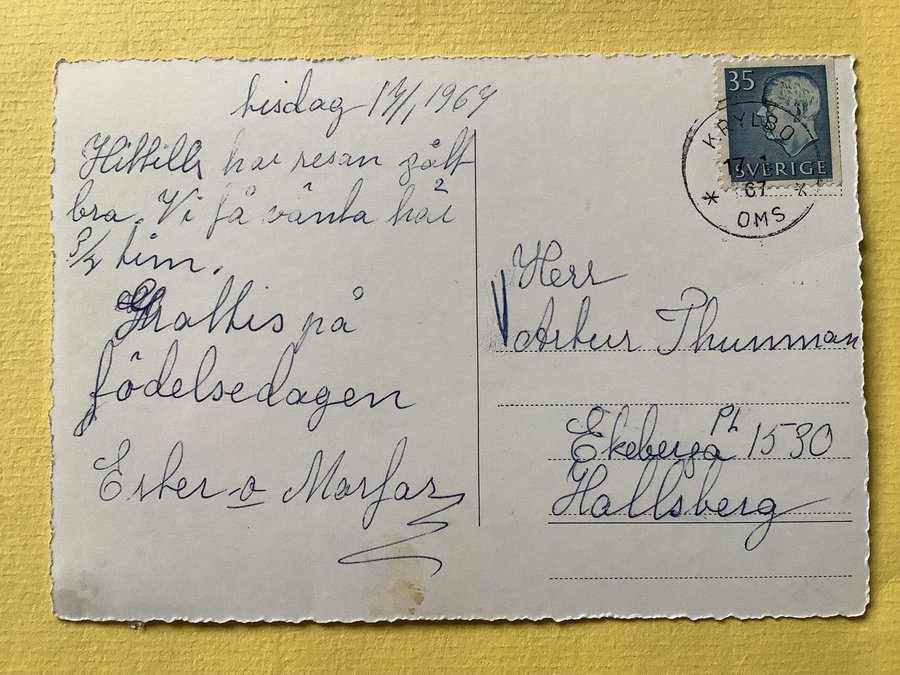 tisdag 17/1 1967
Hittills har resan gått
bra. Vi få vänta här
3/4 tim.
Grattis på
födelsedagen
Ester o Morfar
35
SVERIGE
KRYLBO
17.1
67
OMS
Herr
Artur Thunman
Ekeberga PL 1530
Hallsberg